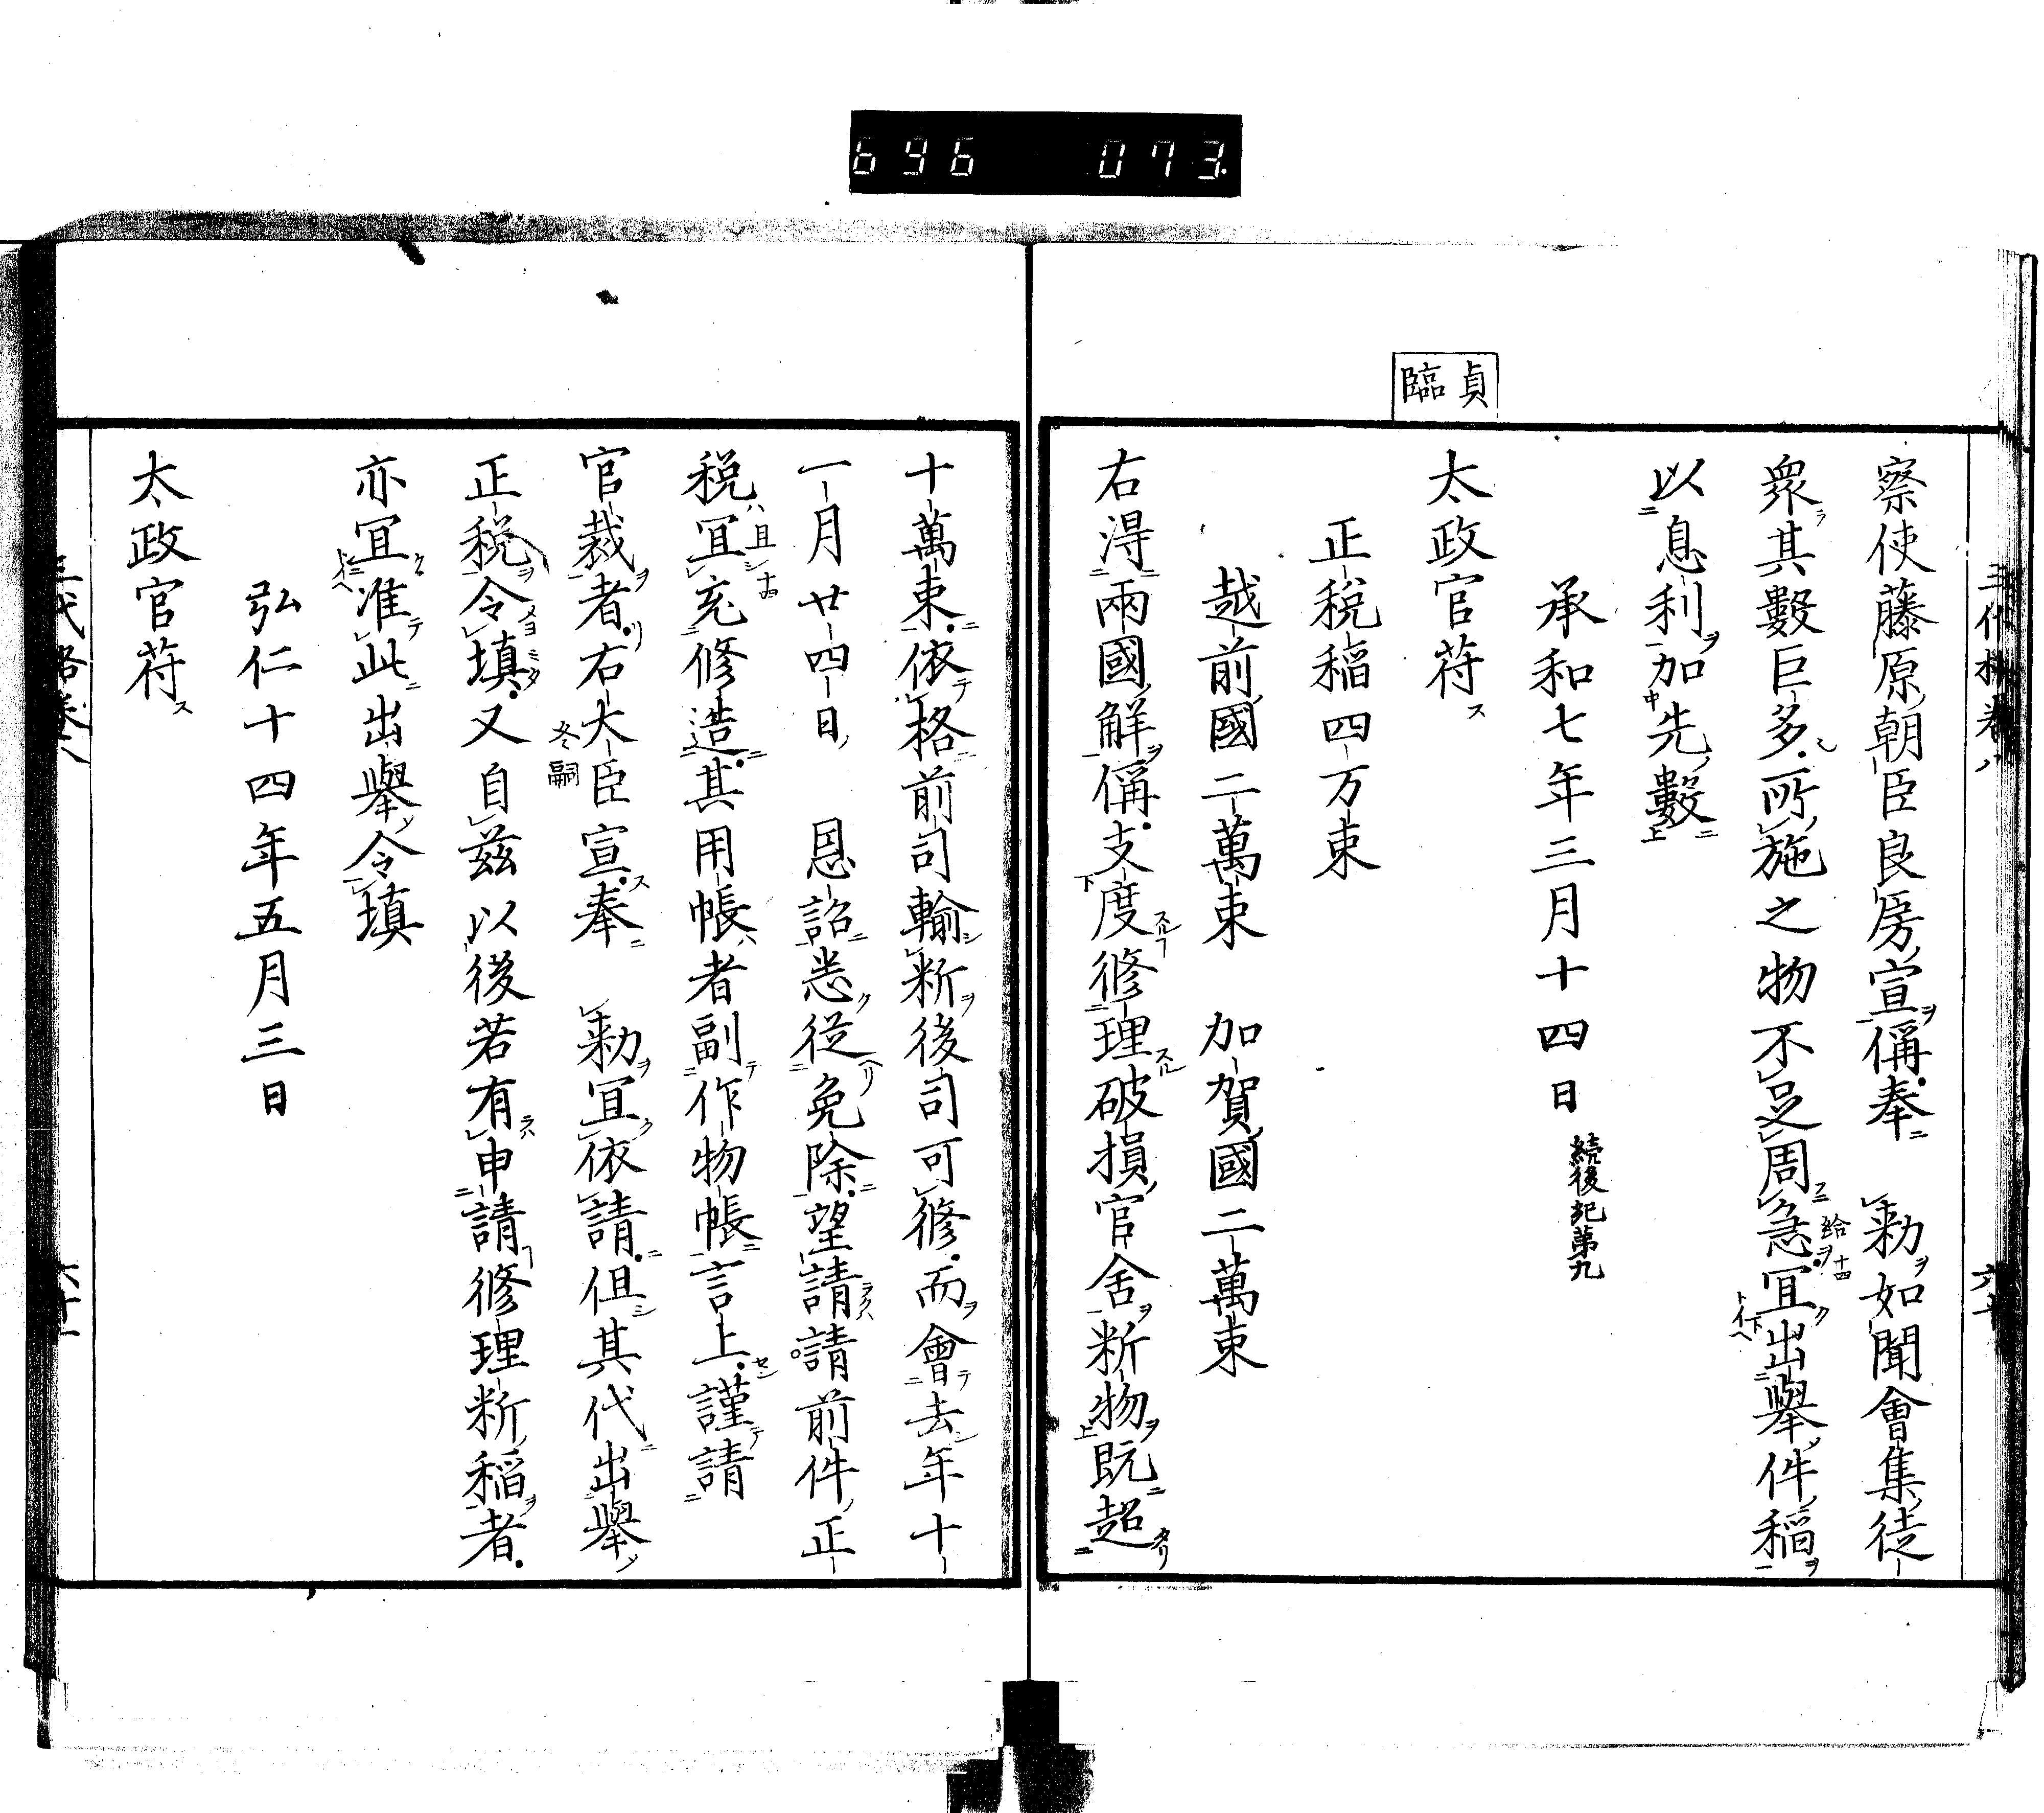 696 073
貞臨
三代格卷八
察使藤原朝臣良房宣稱奉 勅如聞會集徒
衆其數巨多所施之物不足周急宜出擧件稻
給 十四
以息利加先數
承和七年三月十四日 続後紀第九
太政官苻
正税稲四万束
越前國二萬束 加賀國二萬束
右得兩國解偁支度修理破損官舍新物既超
十萬束依格前司輸新後司可修而會去年十
一月廿四日 恩詔悉從免除望請請前件正
税宜充修造其用帳者副作物帳言上謹請
且
官裁者右大臣宣奉 勅宜依請但其代出擧
冬嗣
正税令填又自茲以後若有申請修理新稲者
亦宜准此出擧令填
弘仁十四年五月三日
太政官苻